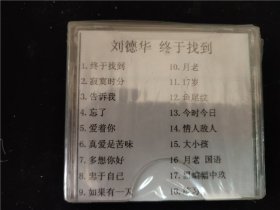 刘德华 终于找到
1.终于找到
2.寂寞时分
3.告诉我
4.忘了
5.爱着你
6.真爱是苦味
7.多想你好
8.忠于自己
9.如果有一天
10.月老
11.17岁
12.鱼尾纹
13.今时今日
14.情人敌人
15.大小孩
16.月老 国语
17.黑蝙蝠中玖
18.